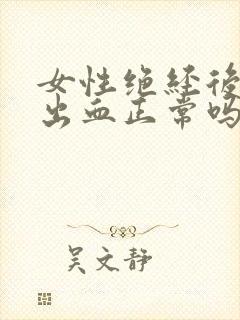 女性绝经後
出血正常吗
吴文静